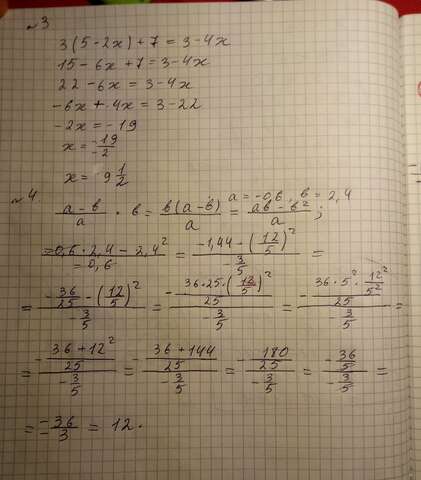 №3
3(5-2x)+7=3-4x
15-6x+7=3-4x
22-6x=3-4x
-6x+4x=3-22
-2x=-19
x=\frac{-19}{-2}
x=9\frac{1}{2}
№4 a=-0,6, в=2,4
\frac{a-в}{a}·в=\frac{в(a-в)}{a}=\frac{aв-в^2}{a};
=\frac{-0,6·2,4-2,4^2}{-0,6}=\frac{-1,44-(\frac{12}{5})^2}{-\frac{3}{5}}=
=\frac{-\frac{36}{25}-(\frac{12}{5})^2}{-\frac{3}{5}}=\frac{-\frac{36·25·(\frac{12}{5})^2}{25}}{-\frac{3}{5}}=\frac{-\frac{36·5^2·\frac{12^2}{5^2}}{25}}{-\frac{3}{5}}=
=\frac{-\frac{36+12^2}{25}}{-\frac{3}{5}}=\frac{-\frac{36+144}{25}}{-\frac{3}{5}}=\frac{-\frac{180}{25}}{-\frac{3}{5}}=\frac{-\frac{36}{5}}{-\frac{3}{5}}=
=\frac{-36}{-3}=12.